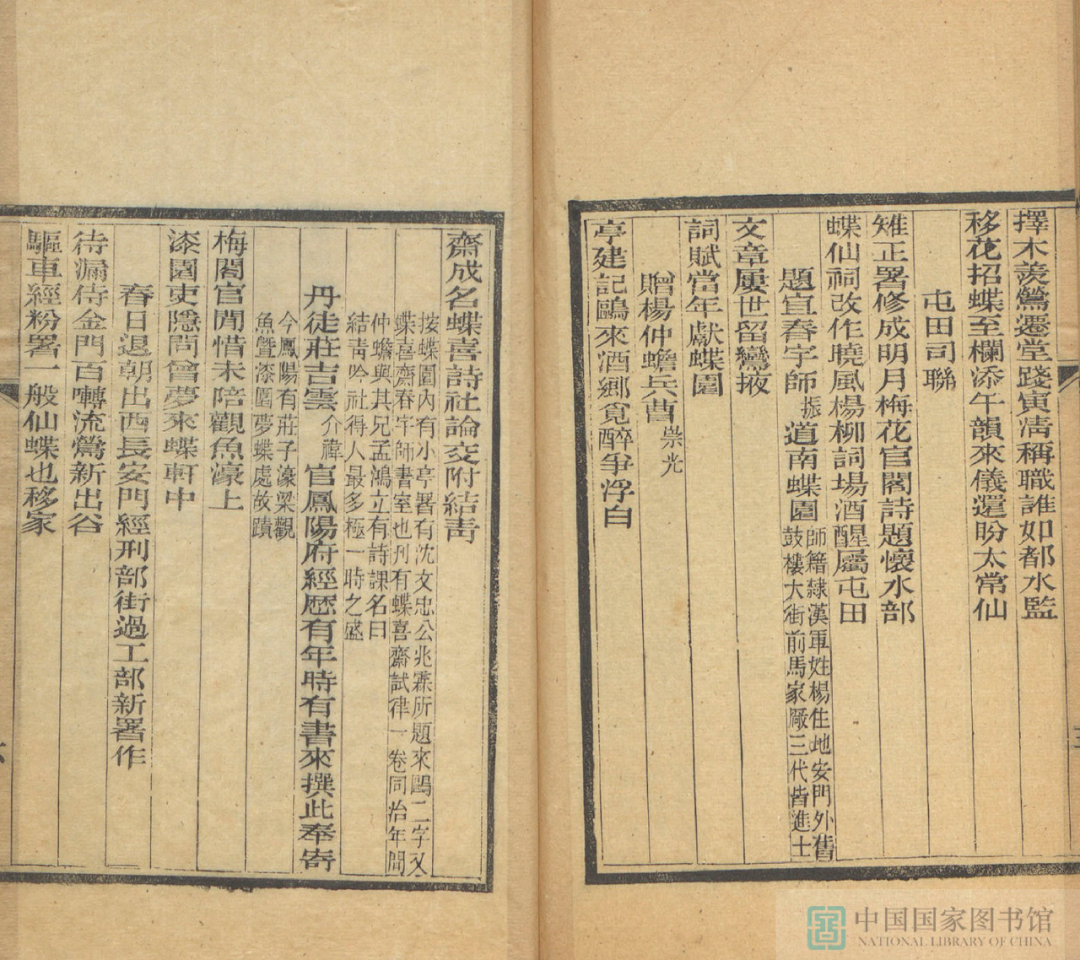 擇木羨鶯遷堂踐寅清稱職誰如都水監
移花招蝶至欄添午韻來儀還盼太常仙
屯田司聯
雉正署修成明月梅花官閣詩題懷水部
蝶仙祠改作曉風楊柳詞場酒醒屬屯田
題宜春宇師振道南蝶園師籍隸漢軍姓楊住地安門外舊
鼓樓大街前馬家厰三代皆進士
文章屢世留鸞掖
詞賦當年獻蝶園
贈楊仲蟾兵曹崇光
亭建記鷗來酒鄉覓醉爭浮白
齋成名蝶喜詩社論交附結青
按蝶園內有小亭署有沈文忠公兆霖所題來鷗二字又
蝶喜齋春宇師書室也刋有蝶喜齋試律一卷同治年間
仲蟾與其兄孟鴻立有詩課名曰
結青吟社得人最多極一時之盛
丹徒莊吉雲介禕官鳳陽府經歷有年時有書來撰此奉寄
今鳳陽有莊子濠梁觀
魚暨漆園夢蝶處故蹟
梅閣官閒惜未陪觀魚濠上
漆園吏隱問曾夢來蝶軒中
春日退朝出西長安門經刑部街過工部新署作
待漏侍金門百囀流鶯新出谷
驅車經粉署一般仙蝶也移家
中国国家图书馆
NATIONAL LIBRARY OF CHINA